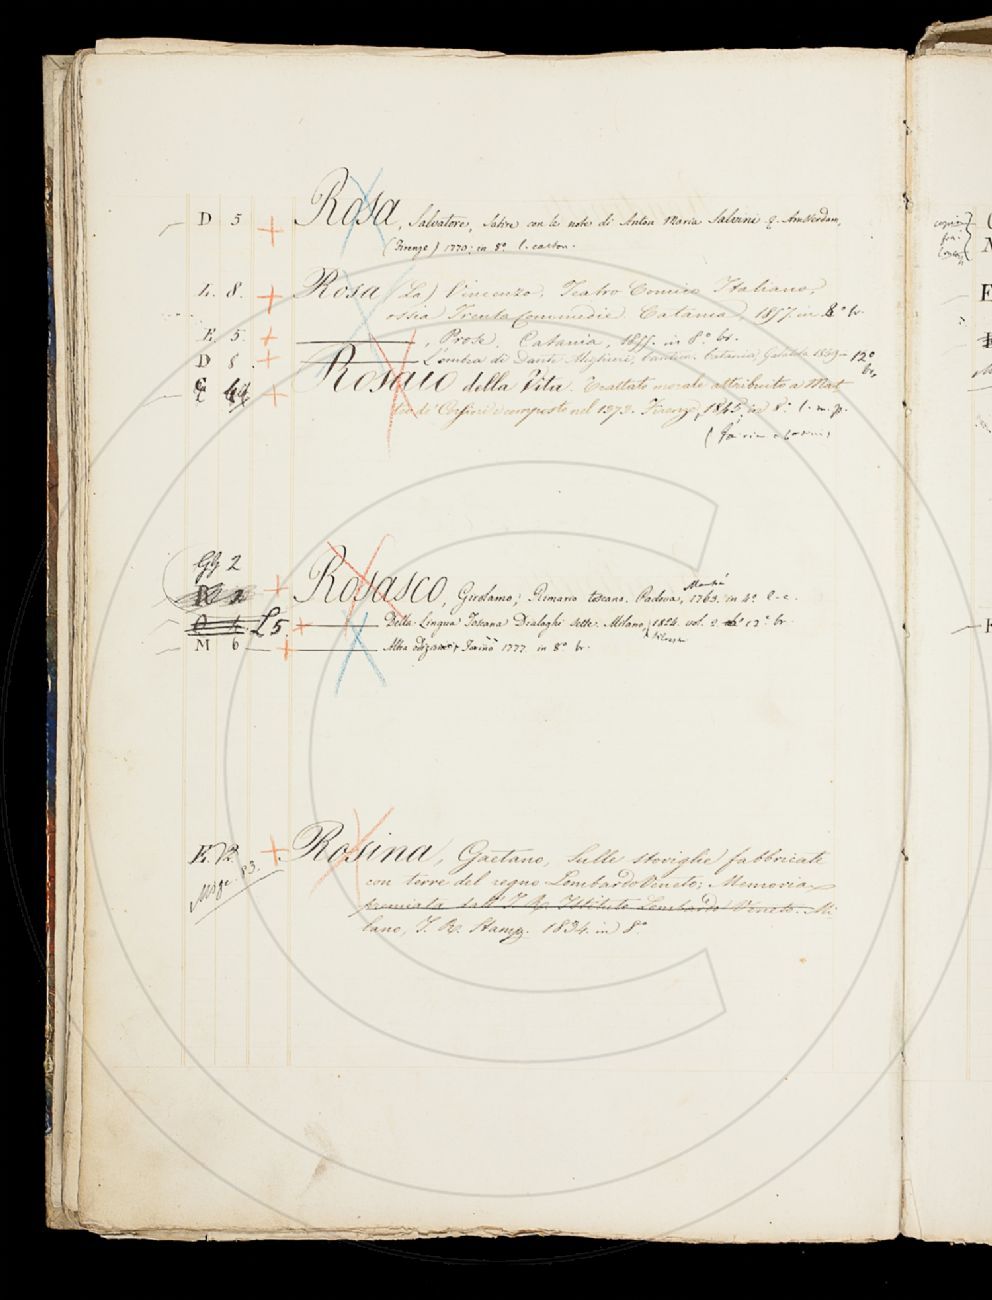 D 5 + Rosa, Salvatore, Satire con le note di Anton Maria Salvini &. Amsterdam,
(Firenze) 1770. in 8º l. carton.
L. 8. + Rosa (La) Vincenzo. Teatro Comico Italiano,
ossia Trenta Commedie. Catania 1857. in 8º br.
E 5. + , Prose. Catania, 1855. in 8º br.
D 8 + L'ombra di Dante Alighieri, Cantica. Catania, 1849 12º
br.
+ Rosaio della Vita. Trattato morale attribuito a Mat
teo de' Corsini e composto nel 1373. Firenze, 1845, in 8º l. m. p.
Gg 2
+ Rosasco, Girolamo, Rimario toscano. Padova, Manfrè 1763. in 4º
L 5. + Della Lingua Toscana Dialoghi sette. Milano, Silvestri 1824. vol. 2. 12º br.
M 6 + Altra edizione, Torino 1777. in 8º br.
E 12. + Rosina, Gaetano, Sulle stoviglie fabbricate
con terre del regno Lombardo Veneto; Memoria
premiata dall' I. R. Istituto Lombardo Veneto. Mi
lano, I. R. Stamp. 1834. in 8º